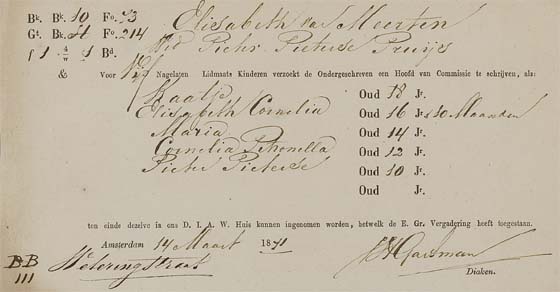 Bk. Bk. 10 Fo. 73 Elisabeth van Meerten
Gt. Bk. H Fo. 214 Wed Pieter Pieterse Pruijs
f 1 4/w 1 Bd.
& Voor Vijf Nagelaten Lidmaats Kinderen verzoekt de Ondergeschreven een Hoofd van Commissie te schrijven, als:
Kaatje Oud 18 Jr.
Elisabeth Cornelia Oud 16 Jr. & 10 Maanden
Maria Oud 14 Jr.
Cornelia Petronella Oud 12 Jr.
Pieter Pieterse Oud 10 Jr.
Oud Jr.
ten einde dezelve in ons D. I. A. W. Huis kunnen ingenomen worden, hetwelk de E. Gr. Vergadering heeft toegestaan.
Amsterdam 14 Maart 1871
BB Weteringstraat
III Diaken.